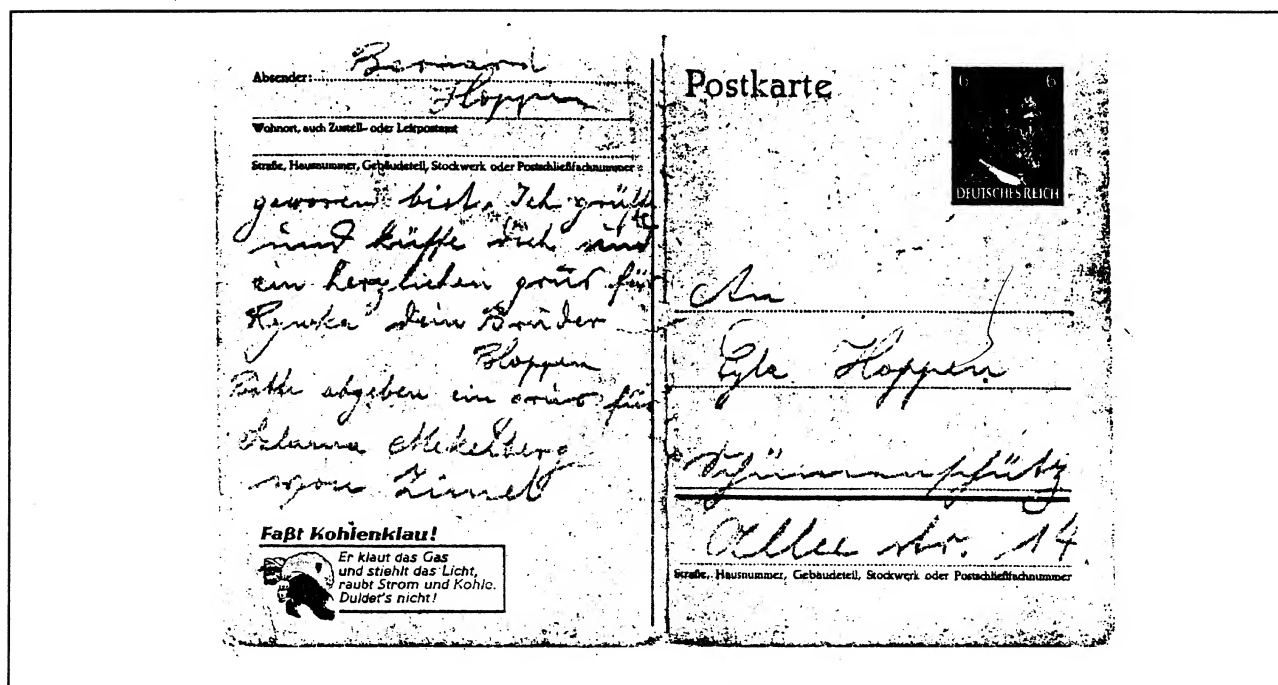 Absender: Bernard
Hoppen
Wohnort, auch Zustell- oder Leitpostamt
Straße, Hausnummer, Gebäudeteil, Stockwerk oder Postschließfachnummer
geworen bist. Ich grüße
und küsse dich und
ein herzlichen grus für
Rywka dein Brüder
BHoppen
Bitte abgeben ein grus für
Mekelberg
von Zimel
Faßt Kohlenklau!
Er klaut das Gas
und stiehlt das Licht,
raubt Strom und Kohle.
Duldet's nicht!
Postkarte
6 6
DEUTSCHES REICH
An
Hoppen
Allee str. 14
Straße, Hausnummer, Gebäudeteil, Stockwerk oder Postschließfachnummer